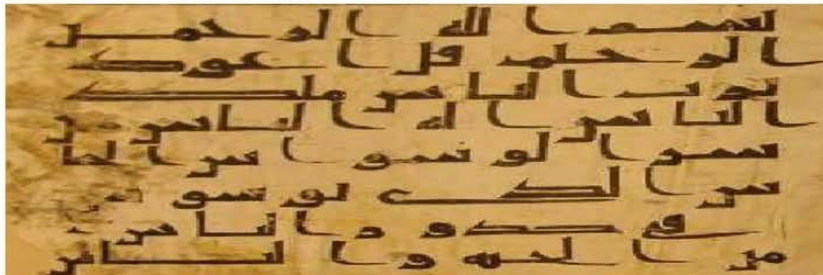 بسم الله الرحمن
الرحيم قل اعوذ
برب الناس ملك
الناس اله الناس من
شر الوسواس الخنا
س الذى يوسوس
فى صدور الناس
من الجنه والناس